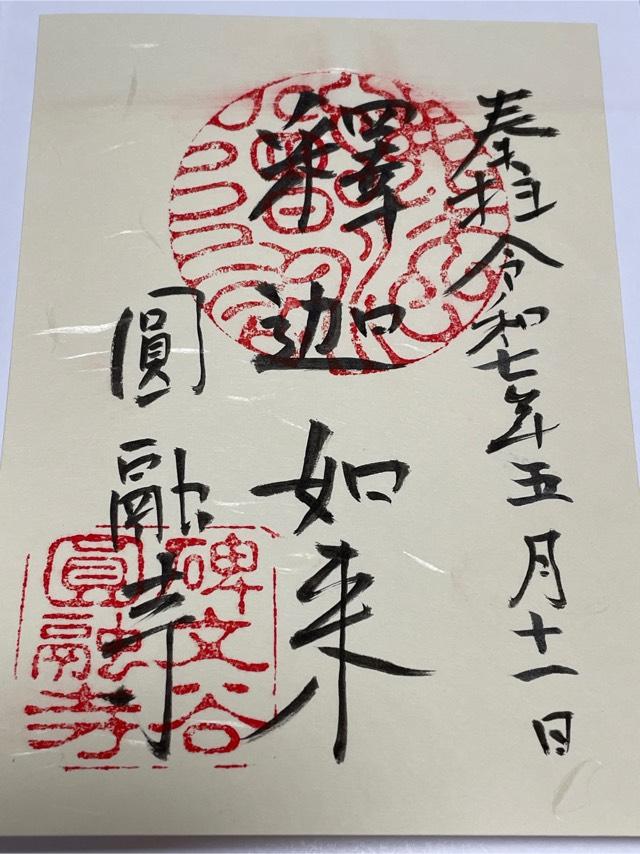 奉拝 令和七年五月十一日
釋迦如来
圓融寺
碑文谷
圓融寺